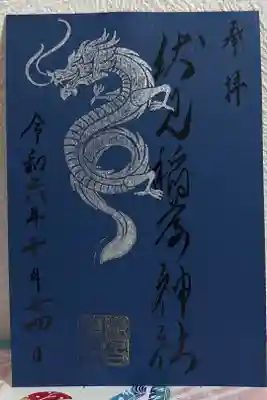 奉拝
伏見稲荷神社
令和六年十月十四日